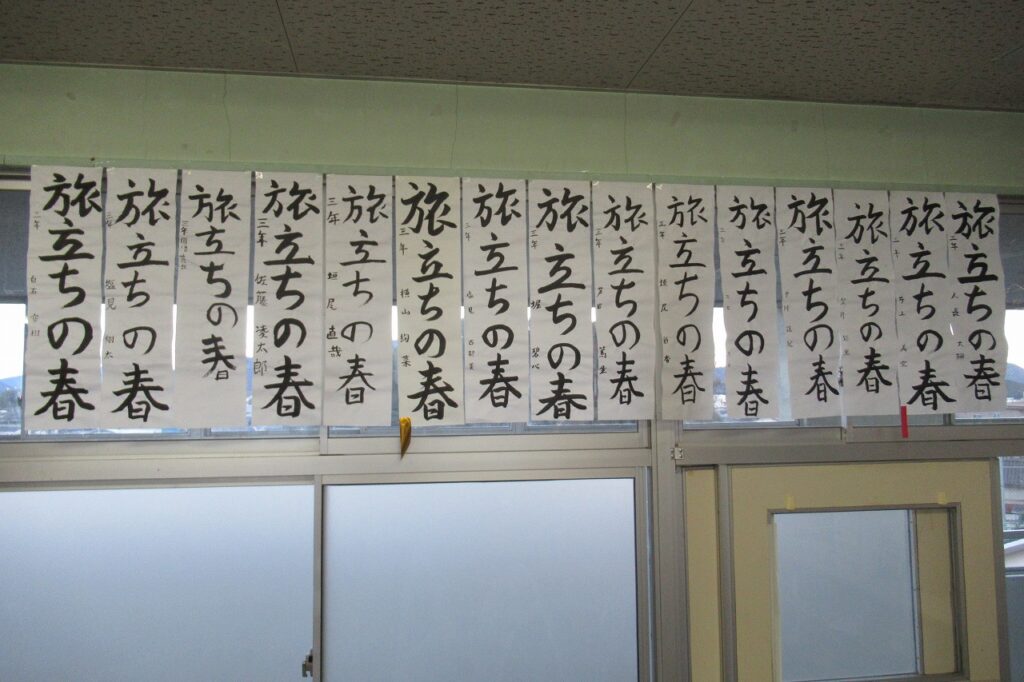 旅立ちの春
三年
旅立ちの春
三年
旅立ちの春
旅立ちの春
三年 佐藤 凌太郎
旅立ちの春
三年 垣尾 直哉
旅立ちの春
三年 横山
旅立ちの春
三年
旅立ちの春
三年 堀 碧心
旅立ちの春
三年
旅立ちの春
三年
旅立ちの春
旅立ちの春
旅立ちの春
旅立ちの春
旅立ちの春